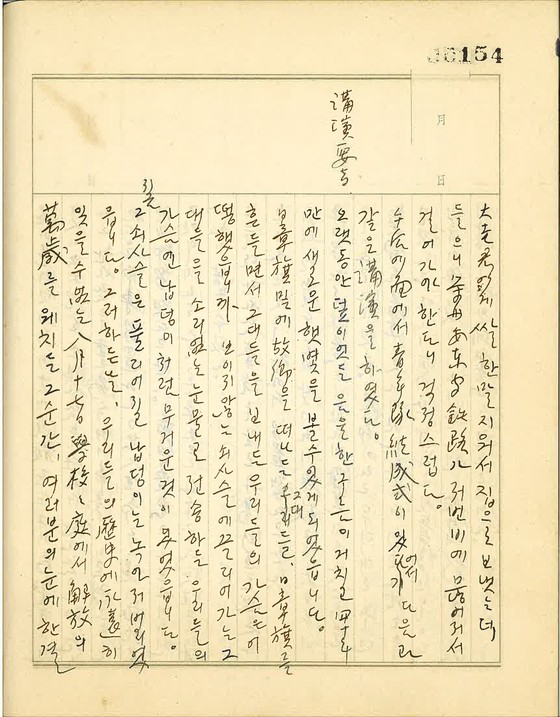 154
月
日
講演要旨
쌀 한말 지워서 집으로 보냈는데
들으니 安東 鉄路가 저번 비에 끊어저서
걸어가야 한다니 걱정스럽다.
에서 青年隊 結成式이 있어서 다음과
같은 講演을 하였다.
오랫동안 덮이었든 음울한 구름이 거치고 四十年
만에 새로운 햇볓을 볼수있게 되었읍니다.
日章旗 밑에 故鄕을 떠나든 그대들, 日章旗를
흔들면서 그대들을 보내든 우리들의 가슴은 어
떻했읍니까 보이지 않는 쇠사슬에 끌리어 가는 그
대들을 소리없는 눈물로 전송하든 우리들의
가슴엔 납덩이처럼 무거운 것이 있었읍니다.
그 쇠사슬은 풀리어지고 납덩이는 녹아저 버리었
읍니다. 그러하는날, 우리들의 歷史에 永遠히
잊을수 없는 八月十七日 學校 庭에서 解放의
萬歲를 웨치든 그 순간, 여러분의 눈에 한결